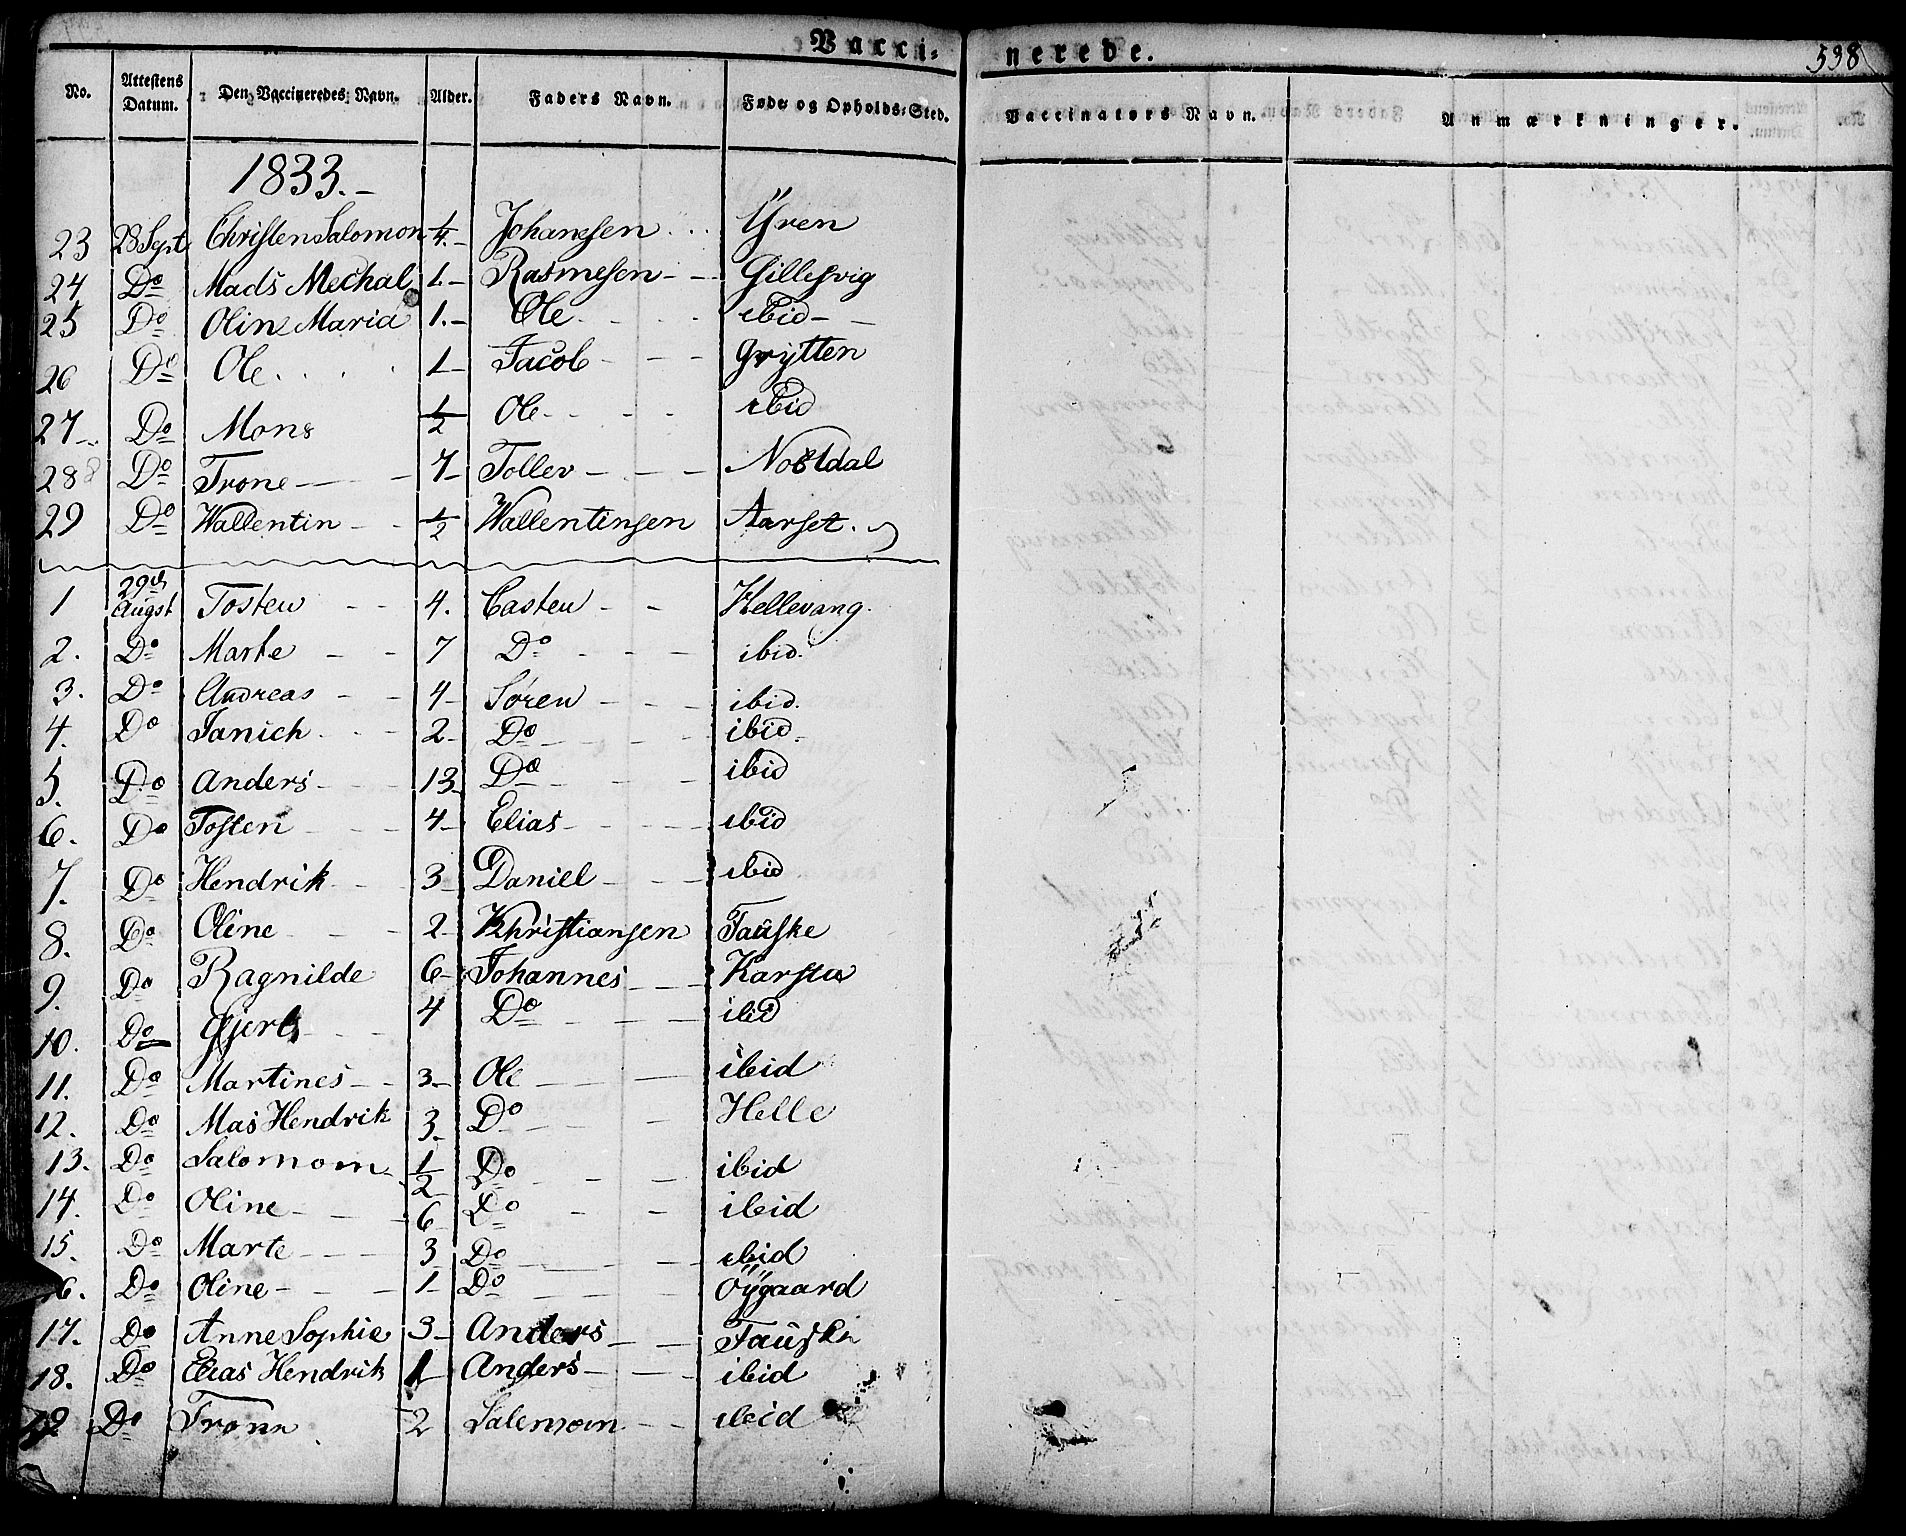 Vacci- nerede. 538
No. Attestens Datum. Den Vaccineredes Navn. Alder. Faders Navn. Føde og Opholds-Sted. Vaccinators Navn. Anmærkninger.
1833.-
23 23 Sept Christen Salomon 1/4.- Johannesen . . . Yren
24 Do Mads Mechal 1.- Rasmesen - - Gillesvig
25 Do Oline Maria 1.- Ole - - - - ibid - -
26 Do Ole . . . . 1- Jacob - - - Grytten
27 Do Mons 1/2 Ole - - - - ibid
28 Do Trone - - - 7- Tollev - - - Nostdal
29 Do Wallentin - - 1/2 Wallentinsen Aarset.
1 29de Augst Tosten - - 4. Casten - - Hellevang.
2. Do Marte - - 7 Do - - - ibid.
3. Do Andreas - - 4- Søren - - - ibid.
4. Do Janich - - - 2- Do - - - ibid.
5. Do Anders - - - 13 Do - - - ibid
6. Do Tosten - - - 4- Elias - - - - ibid
7. Do Hendrik - - - 3- Daniel - - - ibid
8. Do Oline - - - 2- Khristiansen Fauske
9. Do Ragnilde 6- Johannes - - -
10. Do - - 4 Do - - - ibid
11. Do Martines - - 3- Ole - - - ibid
12. Do Mas Hendrik 3. Do - - - Helle
13. Do Salomom 1/2 Do - - - ibid
14. Do Oline - - - 6- Do - - ibid
15. Do Marte - - - 3 Do - - - ibid
16. Do Oline - - - 1- Do - - - Oÿgaard
17. Do Anne Sophie 3- Anders - - Fauske
18. Do Elias Hendrik 1 Anders - - - ibid
19 Do Tronn 2 Salemom - - ibid